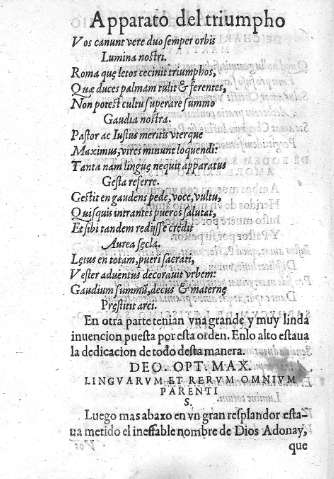 Apparato del triumpho
Vos canunt vere duo semper orbis
Lumina nostri.
Roma quę letos cecinit triumphos,
Quæ duces palmam tulit & ferentes,
Non potest cultu superare summo
Gaudia nostra.
Pastor ac Iustus meritis vterque
Maximus, vires minunt loquendi:
Tanta nam linguę nequit apparatus
Gesta referre.
Gestit en gaudens pede, voce, vultu,
Quisquis intrantes pueros salutat,
Et sibi tandem redijsse credit
Aurea secla.
Lętus en totam, pueri sacrati,
Vester aduentus decorauit vrbem:
Gaudium summū, decus & maternę
Pręstitit arci.
En otra parte tenian vna grande, y muy linda
inuencion puesta por esta orden. Enlo alto estaua
la dedicacion de todo desta manera.
DEO. OPT. MAX.
LINGVARVM ET RERVM OMNIVM
PARENTI
S.
Luego mas abaxo en vn gran resplandor esta-
ua metido el inessable nombre de Dios Adonay,
que